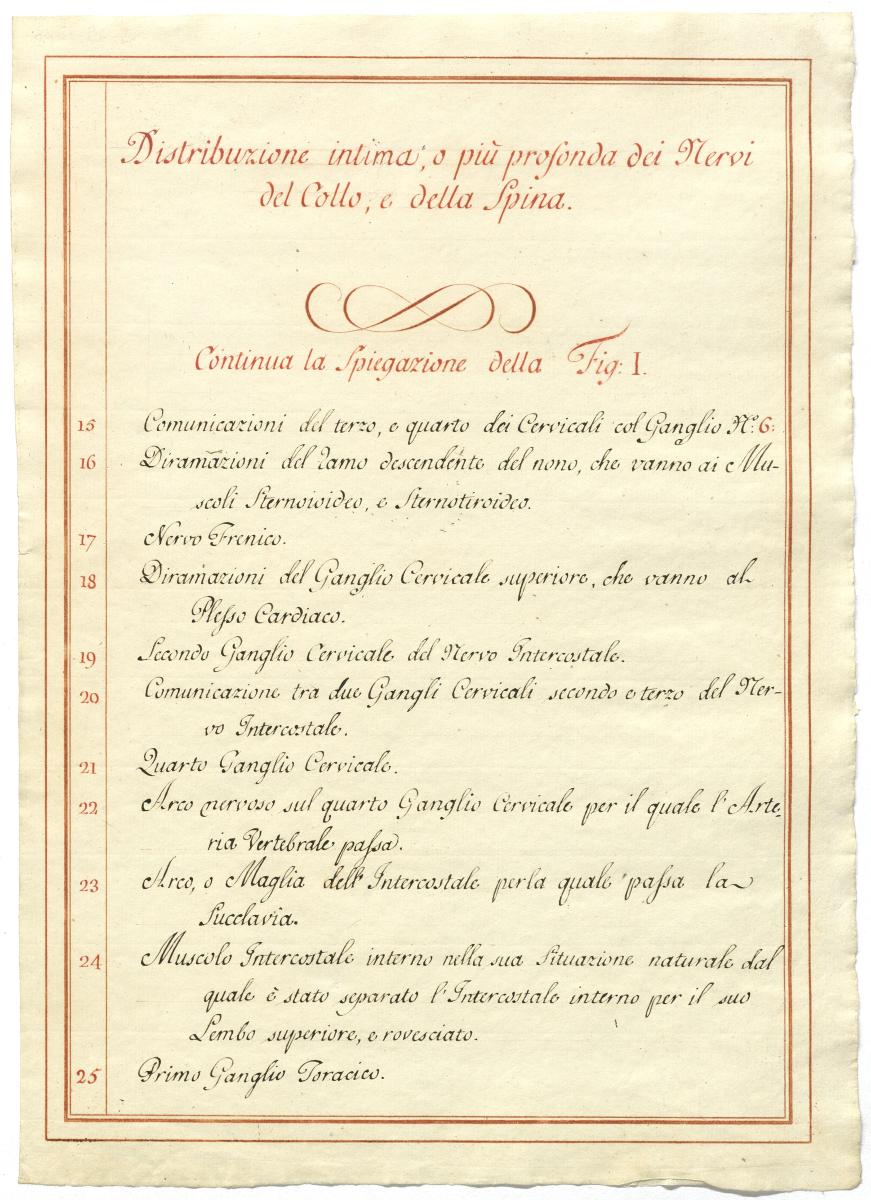 Distribuzione intima, o più profonda dei Nervi
del Collo, e della Spina.
Continua la Spiegazione della Fig: I.
15 Comunicazioni del terzo, e quarto dei Cervicali col Ganglio N.º 6:
16 Diramazioni del ramo descendente del nono, che vanno ai Mu-
scoli Sternoioideo, e Sternotiroideo.
17 Nervo Frenico.
18 Diramazioni del Ganglio Cervicale superiore, che vanno al
Plesso Cardiaco.
19 Secondo Ganglio Cervicale del Nervo Intercostale.
20 Comunicazione tra due Gangli Cervicali secondo e terzo del Ner-
vo Intercostale.
21 Quarto Ganglio Cervicale.
22 Arco nervoso sul quarto Ganglio Cervicale per il quale l'Arte-
ria Vertebrale passa.
23 Arco, o Maglia dell'Intercostale perla quale passa la
Succlavia.
24 Muscolo Intercostale interno nella sua Situazione naturale dal
quale è stato separato l'Intercostale interno per il suo
Lembo superiore, e rovesciato.
25 Primo Ganglio Toracico.